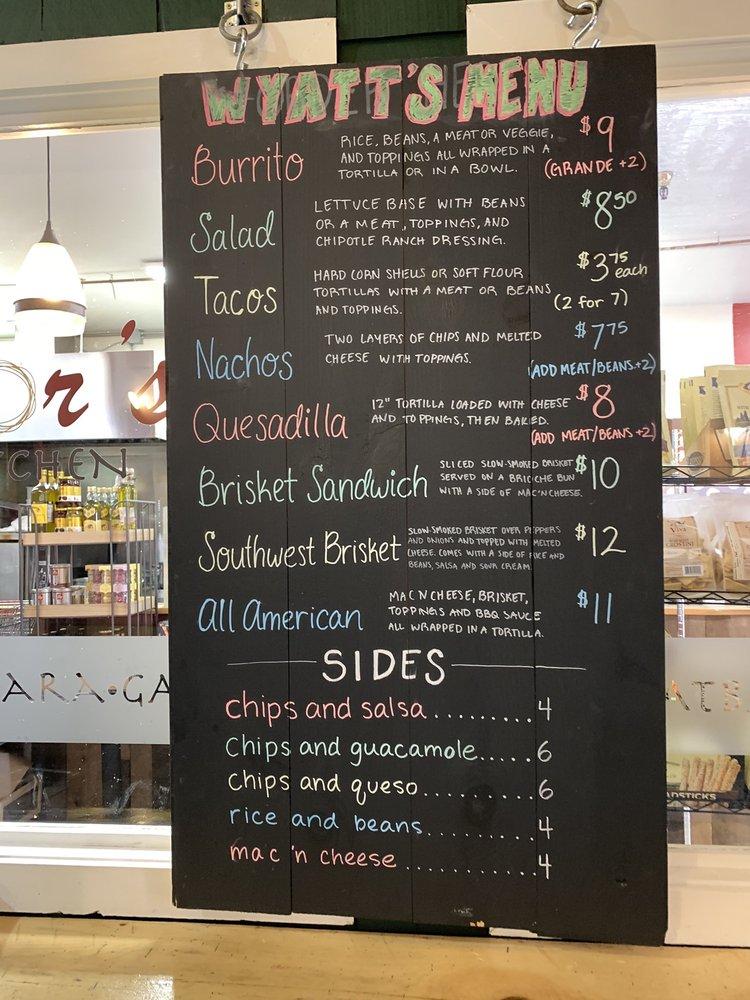 WYATT'S MENU
Burrito
RICE, BEANS, A MEAT OR VEGGIE,
AND TOPPINGS ALL WRAPPED IN A
TORTILLA OR IN A BOWL.
$9
(GRANDE +2)
Salad
LETTUCE BASE WITH BEANS
OR A MEAT, TOPPINGS, AND
CHIPOTLE RANCH DRESSING.
$8.50
Tacos
HARD CORN SHELLS OR SOFT FLOUR
TORTILLAS WITH A MEAT OR BEANS
AND TOPPINGS.
$3.75 each
(2 for 7)
Nachos
TWO LAYERS OF CHIPS AND MELTED
CHEESE WITH TOPPINGS.
$7.75
(ADD MEAT/BEANS +2)
Quesadilla
12" TORTILLA LOADED WITH CHEESE
AND TOPPINGS, THEN BAKED.
$8
(ADD MEAT/BEANS +2)
Brisket Sandwich
SLICED SLOW-SMOKED BRISKET
SERVED ON A BRIOCHE BUN
WITH A SIDE OF MAC'N CHEESE.
$10
Southwest Brisket
SLOW-SMOKED BRISKET OVER PEPPERS
AND ONIONS AND TOPPED WITH MELTED
CHEESE. COMES WITH A SIDE OF RICE AND
BEANS, SALSA AND SOUR CREAM.
$12
All American
MAC N CHEESE, BRISKET,
TOPPINGS AND BBQ SAUCE
ALL WRAPPED IN A TORTILLA.
$11
SIDES
chips and salsa.........4
chips and guacamole.....6
chips and queso.........6
rice and beans.........4
mac 'n cheese .........4
or's
CHEN
ARA•GA
ATB
Viva
ADSTICKS